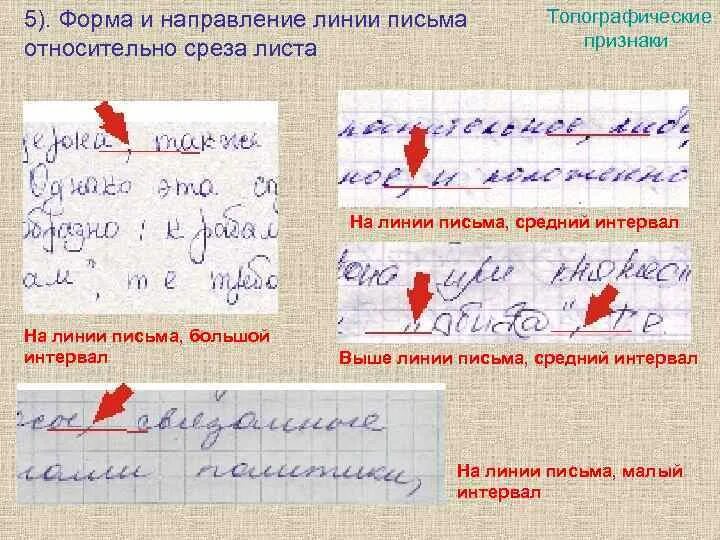 5). Форма и направление линии письма
относительно среза листа
Топографические
признаки
также
Однако эта
образно: к рабам
ам", т е требо
На линии письма, большой
интервал
нительное, либо
ное, и положенно
На линии письма, средний интервал
при
Выше линии письма, средний интервал
связанные
политики,
На линии письма, малый
интервал